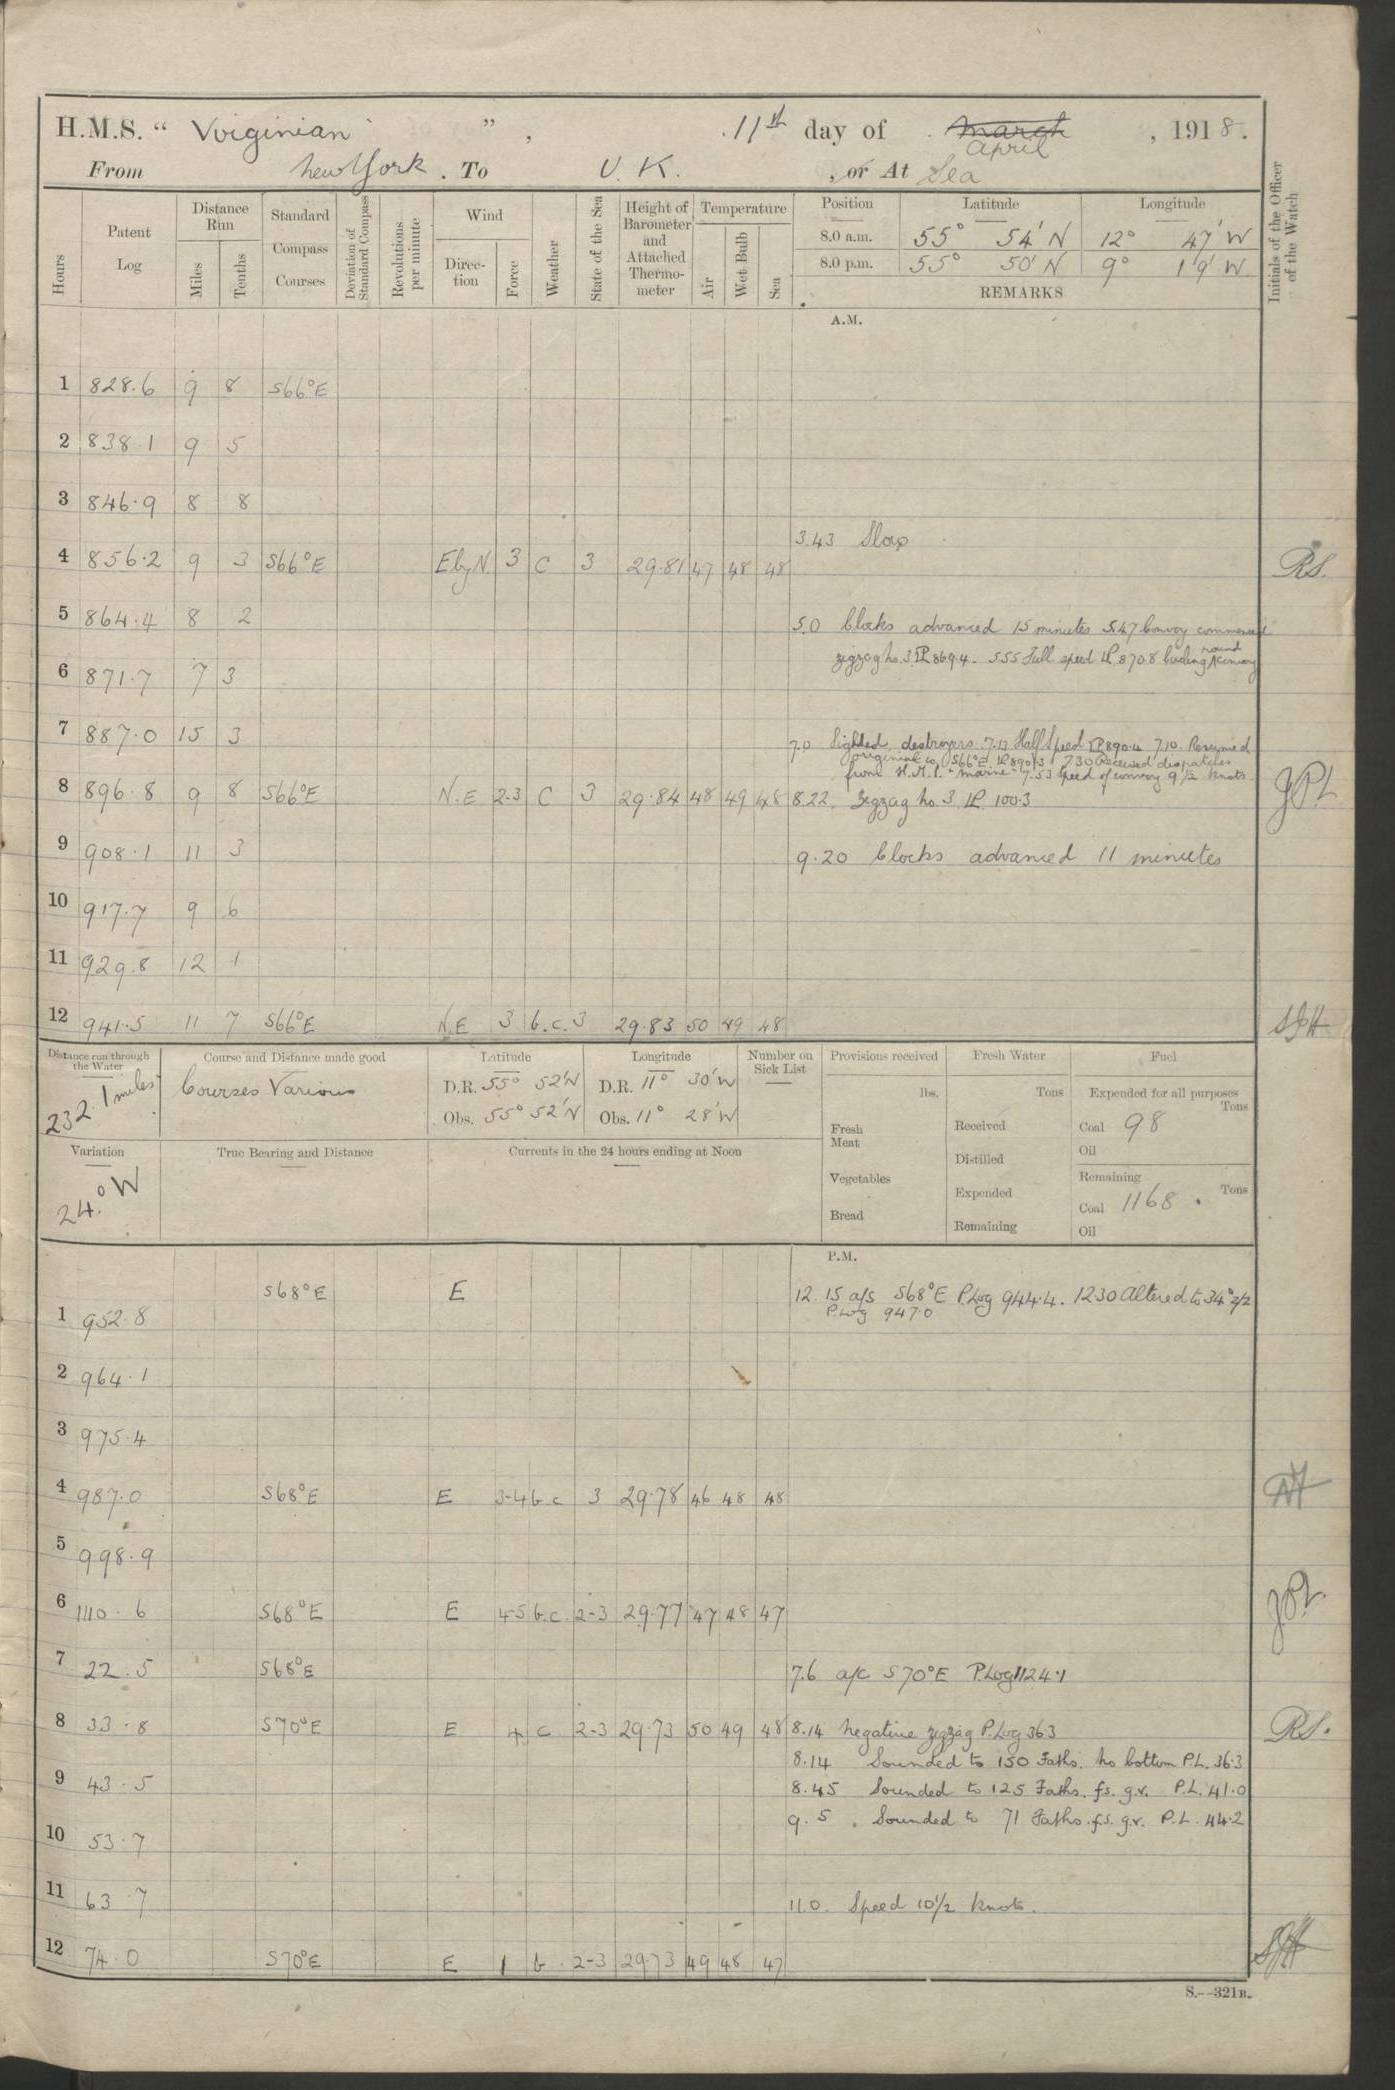 H.M.S. “ Virginian ” , 11th day of March April , 1918.
From New York . To U. K. , or At Sea
Hours
Patent Log
Distance Run
Miles
Tenths
Standard Compass Courses
Deviation of Standard Compass
Revolutions per minute
Wind
Direction
Force
Weather
State of the Sea
Height of Barometer and Attached Thermometer
Temperature
Air
Wet Bulb
Sea
Position Latitude Longitude
8.0 a.m. 55° 54' N 12° 47' W
8.0 p.m. 55° 50' N 9° 19' W
REMARKS
Initials of the Officer of the Watch
A.M.
1 828.6 9 8 S66°E
2 838.1 9 5
3 846.9 8 8
3.43 Slow
4 856.2 9 3 S66°E EbyN 3 C 3 29.81 47 48 48 RS.
5 864.4 8 2 5.0 Clocks advanced 15 minutes 5.47 Convoy commenced
zigzag No. 3 PL 869.4. 5.55 Full speed PL 870.8 round convoy
6 871.7 7 3
7 887.0 15 3 7.0 Sighted destroyers 7.13 Half Speed PL 890.4 7.10 Resumed
original co. S66°E PL 890.3 7.30 Received dispatches
from H.M.S. "Marne" 7.53 Speed of convoy 9½ knots
8 896.8 9 8 S66°E N.E 2-3 C 3 29.84 48 49 48 8.22 Zegzag No. 3 PL 100.3 JPL
9 908.1 11 3 9.20 Clocks advanced 11 minutes
10 917.7 9 6
11 929.8 12 1
12 941.5 11 7 S66°E N.E 3 b.c. 3 29.83 50 49 48
Distance run through the Water
232.1 miles
Course and Distance made good
Courses Various
Latitude
D.R. 55° 52'N
Obs. 55° 52'N
Longitude
D.R. 11° 30'W
Obs. 11° 28'W
Number on Sick List
Provisions received
lbs.
Fresh Meat
Vegetables
Bread
Fresh Water
Tons
Received
Distilled
Expended
Remaining
Fuel
Expended for all purposes
Tons
Coal 98
Oil
Remaining
Tons
Coal 1168.
Oil
Variation
24.° W
True Bearing and Distance
Currents in the 24 hours ending at Noon
P.M.
S68°E E 12.15 a/s S68°E P.Log 944.4. 1230 Altered to 34° z/z
P.Log 947.0
1 952.8
2 964.1
3 975.4
4 987.0 S68°E E 3-4 b.c 3 29.78 46 48 48
5 998.9
6 1110.6 S68°E E 4-5 b.c. 2-3 29.77 47 48 47 JPL
7 22.5 S68°E 7.6 a/c S70°E P.Log 1124.1
8 33.8 S70°E E 4 c 2-3 29.73 50 49 48 8.14 Negative zigzag P.Log 36.3 RS.
8.14 Sounded to 150 Faths. No bottom P.L. 36.3
9 43.5 8.45 Sounded to 125 Faths. fs. gr. P.L. 41.0
9.5. Sounded to 71 Faths. f.s. gr. P.L. 44.2
10 53.7
11 63.7 11.0. Speed 10½ knots.
12 74.0 S70°E E 1 b. 2-3 29.73 49 48 47
S.—321B.